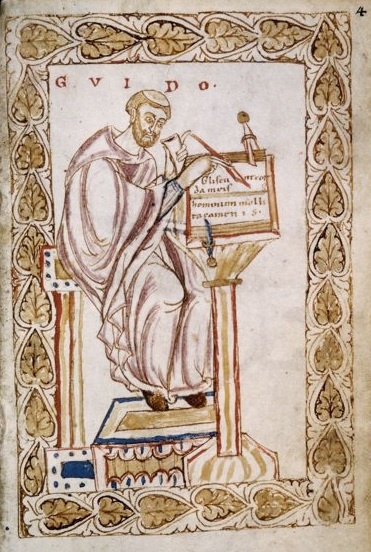 4
GVIDO·
Gliscunt cor
da meis
hominum molli
ta camenis·